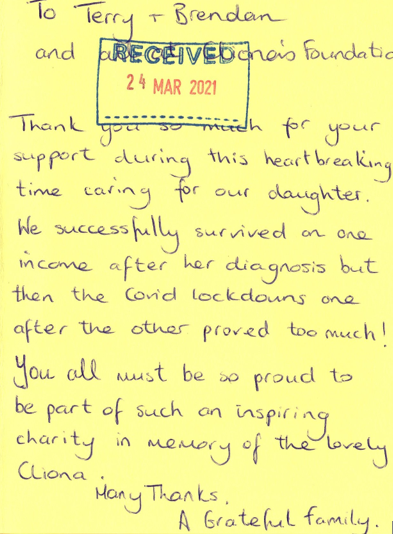 To Terry + Brendan
and all Cliona's Foundatio
RECEIVED
24 MAR 2021
Thank you so much for your
support during this heartbreaking
time caring for our daughter.
We successfully survived on one
income after her diagnosis but
then the Covid lockdowns one
after the other proved too much!
You all must be so proud to
be part of such an inspiring
charity in memory of the lovely
Cliona.
Many Thanks.
A Grateful family.